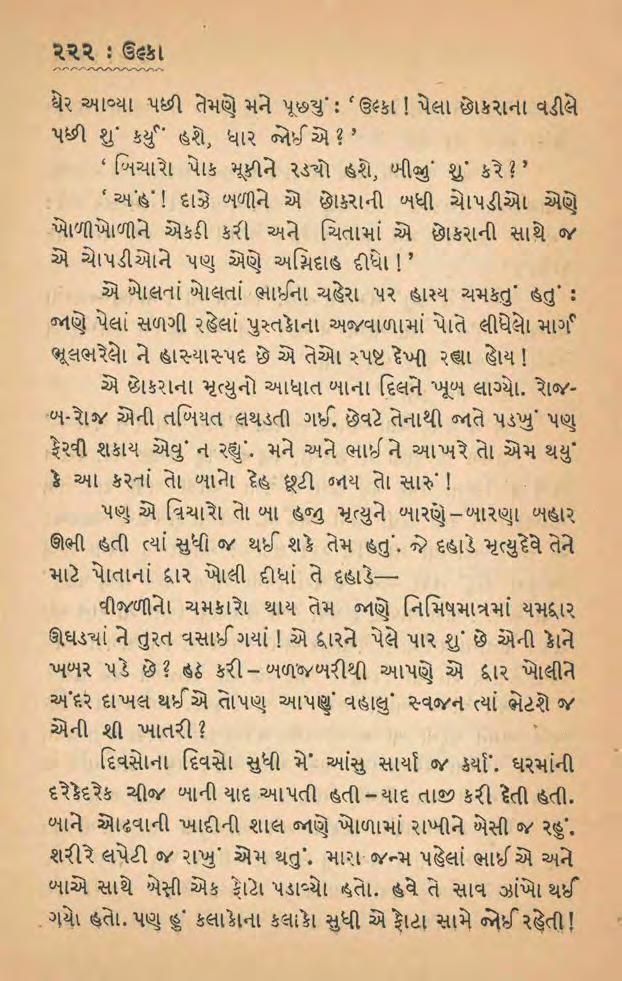 ૨૨૨ : ઉલ્કા
ઘેર આવ્યા પછી તેમણે મને પૂછ્યું : ‘ ઉલ્કા ! પેલા છોકરાના વડીલે
પછી શું કર્યું હશે, ધાર જોઈએ ? ’
‘ બિચારો પોક મૂકીને રડ્યો હશે, બીજું શું કરે ? ’
‘ અંહં ! દાઝે બળીને એ છોકરાની બધી ચોપડીઓ એણે
ખોળીખોળીને એકઠી કરી અને ચિતામાં એ છોકરાની સાથે જ
એ ચોપડીઓને પણ એણે અગ્નિદાહ દીધો ! ’
એ બોલતાં બોલતાં ભાઈના ચહેરા પર હાસ્ય ચમકતું હતું :
જાણે પેલાં સળગી રહેલાં પુસ્તકોના અજવાળામાં પોતે લીધેલો માર્ગ
ભૂલભરેલો ને હાસ્યાસ્પદ છે એ તેઓ સ્પષ્ટ દેખી રહ્યા હોય !
એ છોકરાના મૃત્યુનો આઘાત બાના દિલને ખૂબ લાગ્યો. રોજ-
બ-રોજ એની તબિયત લથડતી ગઈ. છેવટે તેનાથી જાતે પડખું પણ
ફેરવી શકાય એવું ન રહ્યું. મને અને ભાઈને આખરે તો એમ થયું
કે આ કરતાં તો બાનો દેહ છૂટી જાય તો સારું !
પણ એ વિચારો તો બા હજુ મૃત્યુને બારણે – બારણા બહાર
ઊભી હતી ત્યાં સુધી જ થઈ શકે તેમ હતું. જે દહાડે મૃત્યુદેવે તેને
માટે પોતાનાં દ્વાર ખોલી દીધાં તે દહાડે—
વીજળીનો ચમકારો થાય તેમ જાણે નિમિષમાત્રમાં યમદ્વાર
ઊઘડ્યાં ને તુરત વસાઈ ગયાં ! એ દ્વારને પેલે પાર શું છે એની કોને
ખબર પડે છે ? હઠ કરી – બળજબરીથી આપણે એ દ્વાર ખોલીને
અંદર દાખલ થઈએ તોપણ આપણું વહાલું સ્વજન ત્યાં ભેટશે જ
એની શી ખાતરી ?
દિવસોના દિવસો સુધી મેં આંસુ સાર્યાં જ કર્યાં. ઘરમાંની
દરેકેદરેક ચીજ બાની યાદ આપતી હતી – યાદ તાજી કરી દેતી હતી.
બાને ઓઢવાની ખાદીની શાલ જાણે ખોળામાં રાખીને બેસી જ રહું.
શરીરે લપેટી જ રાખું એમ થતું. મારા જન્મ પહેલાં ભાઈએ અને
બાએ સાથે બેસી એક ફોટો પડાવ્યો હતો. હવે તે સાવ ઝાંખો થઈ
ગયો હતો. પણ હું કલાકોના કલાકો સુધી એ ફોટા સામે જોઈ રહેતી !